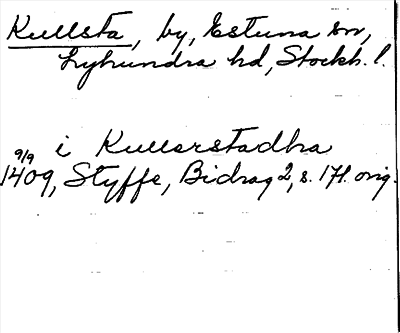 Kullsta, by, Estuna sn,
Lyhundra hd, Stockh. l.
i Kullerstadha
9/9 1409, Styffe, Bidrag 2, s. 171. orig.